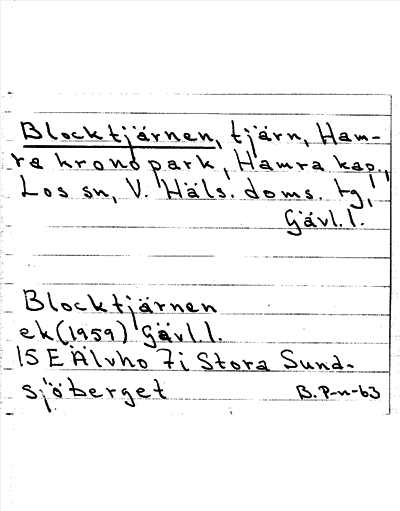 Blocktjärnen, tjärn, Ham-
ra kronopark, Hamra kap.,
Los sn, V. Häls. doms. tg,
Gävl.l.
Blocktjärnen
ek (1959) Gävl.l.
15 E Älvho 7i Stora Sund-
sjöberget
B. P-n-63